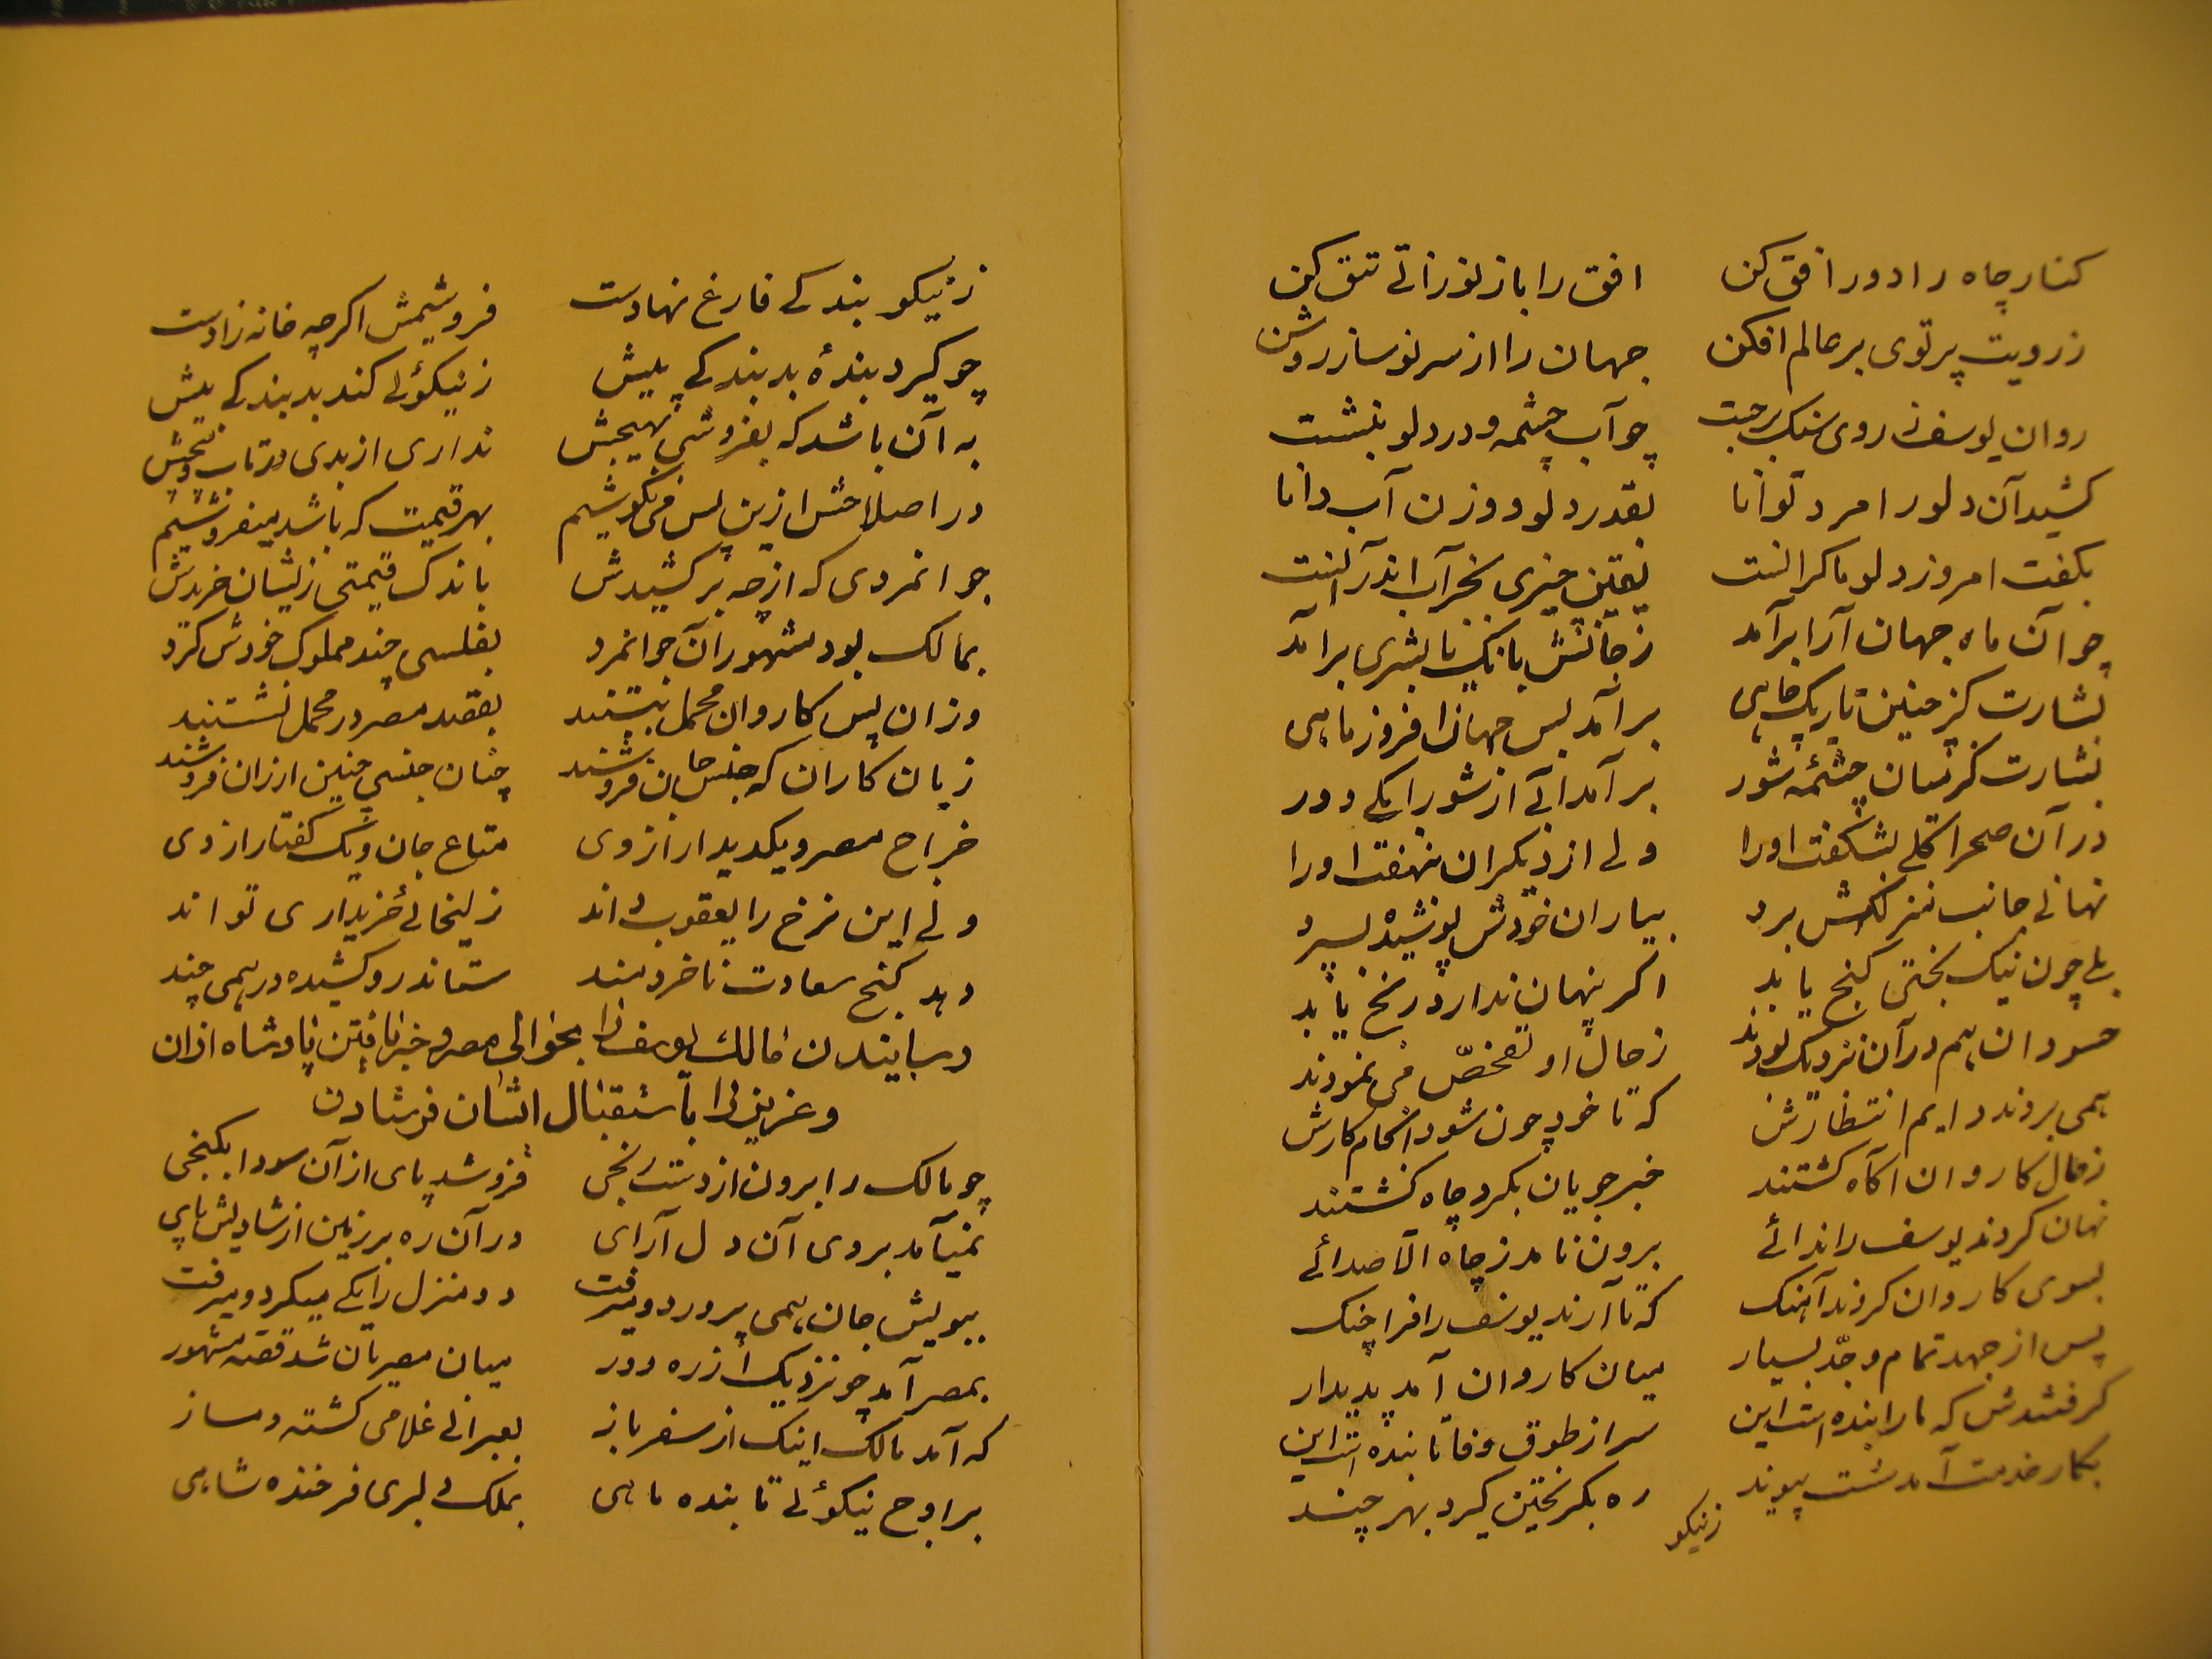 کنار چاه را دور افق کن افق را باز نورانی تتق کن
ز رویت پرتوی بر عالم افکن جهان را از سر نو ساز روشن
روان یوسف ز روی سنک برجست چو آب چشمه و در دلو بنشست
کشید آن دلو را مرد توانا بقدر دلو و وزن آب دانا
بکفت امروز دلو ما کرانست یقین چیزی بجز آب اندر آنست
چو آن ماه جهان آرا برآمد ز جانش بانک یا بشری برآمد
بشارت کز چنین تاریک چاهی برآمد بس جهان افروز ماهی
بشارت کز میان چشمهٔ شور برآمد آبی از شورابکی دور
در آن صحرا کلی بشکفت او را ولی از دیکران بنهفت او را
نهانی جانب منزلکهش برد بیاران خودش پوشیده بسپرد
بلی چون نیک بختی کنج یابد اکر پنهان ندارد رنج یابد
حسودان هم در آن نزدیک بودند ز حال او تفحص می نمودند
همی بردند دایم انتظارش که تا خود چون شود انجام کارش
ز حال کاروان آکاه کشتند خبر جویان بکرد چاه کشتند
نهان کردند یوسف را ندائی برون نامد ز چاه الا صدائی
بسوی کاروان کردند آهنک که تا آرند یوسف را فرا چنک
پس از جهد تمام و جدّ بسیار میان کاروان آمد پدیدار
کرفتندش که ما را بنده است این سر از طوق وفا تابنده است این
بکار خدمت آمد سست پیوند ره بکریختن کیرد بهر چند
زنیکو
ز نیکو بندکی فارغ نهادست فروشیمش اکرچه خانه زادست
چو کیرد بندهٔ بد بندکی پیش ز نیکوئی کند بد بندکی بیش
به آن باشد که بفروشی بهیچش نداری از بدی در تاب و پیچش
در اصلاحش ازین پس می نکوشیم بهر قیمت که باشد میفروشیم
جوانمردی که از چه برکشیدش باندک قیمتی زیشان خریدش
بمالک بود مشهور آن جوانمرد بفلسی چند مملوک خودش کرد
وزان پس کاروان محمل ببستند بقصد مصر در محمل نشستند
زیان کاران که جنس جان فروشند چنان جنسی چنین ارزان فروشند
خراج مصر و یکدیدار از وی متاع جان و یک کفتار از وی
ولی این نرخ را یعقوب داند زلیخائی خریداری تواند
دهد کنج سعادت ناخردمند ستاند رو کشیده درهمی چند
رسانیدن مالک یوسف را بحوالی مصر و خبر یافتن پادشاه ازان
و عزیز را باستقبال ایشان فرستادن
چو مالک را برون از دست رنجی فروشد پای از آن سودا بکنجی
نمیآمد بروی آن دل آرای در آن ره بر زمین از شادیش پای
ببویش جان همی پرورد و میرفت دو منزل را یکی میکرد و میرفت
بمصر آمد چو نزدیک از ره دور میان مصریان شد قصه مشهور
که آمد مالک اینک از سفر باز بعبرانی غلامی کشته دمساز
بر اوج نیکوئی تابنده ماهی بملک دلبری فرخنده شاهی